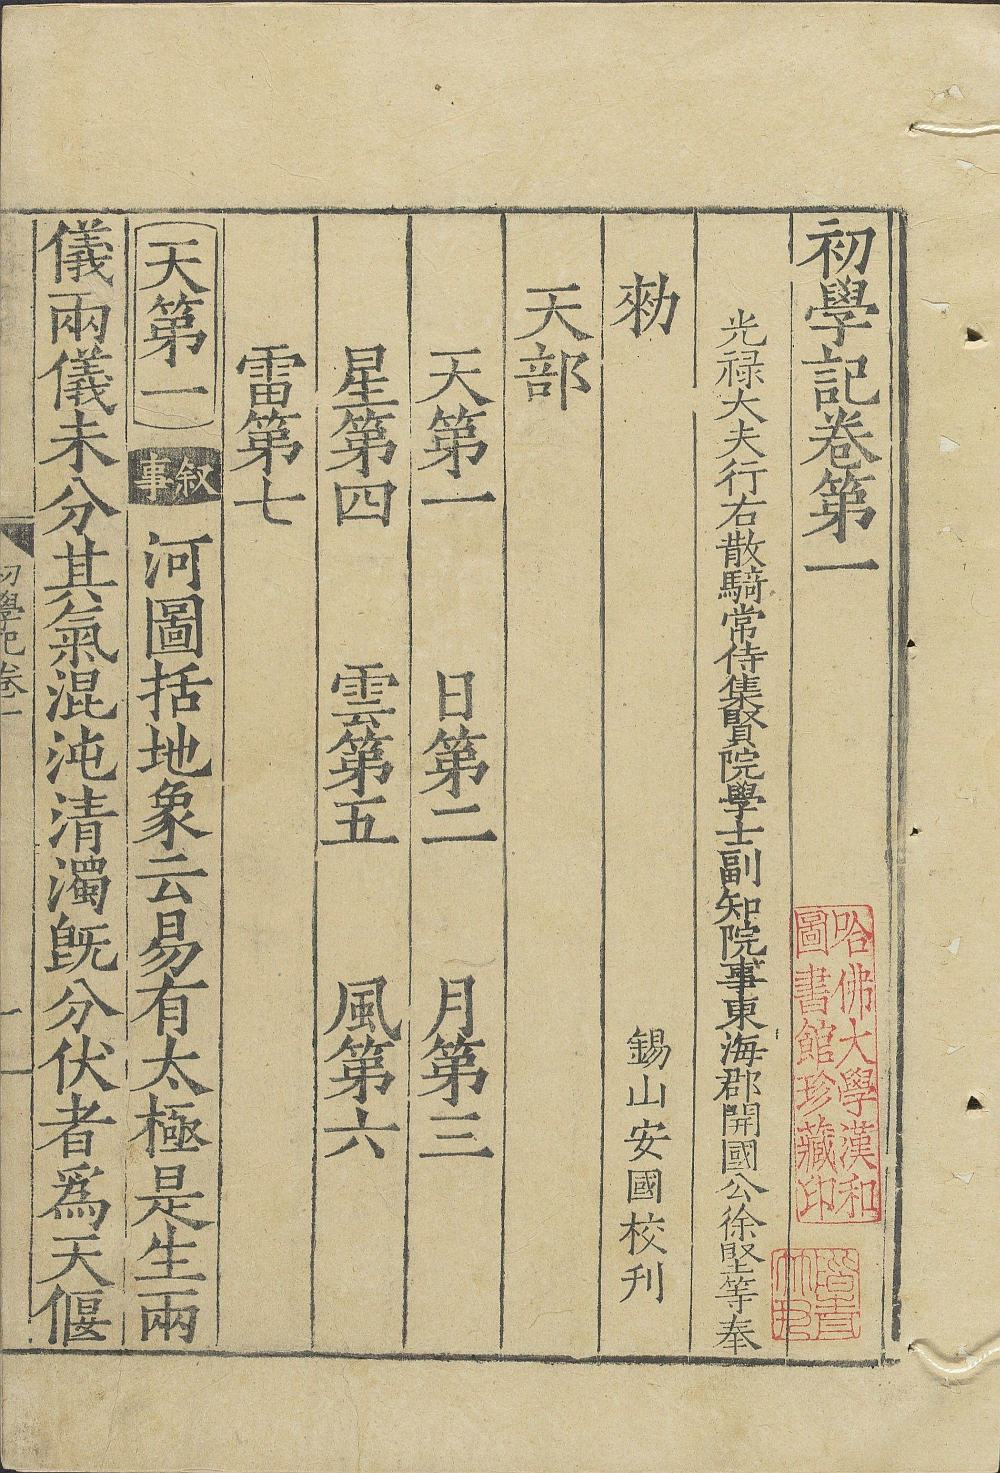 初學記卷第一
光禄大夫行右散騎常侍集賢院學士副知院事東海郡開國公徐堅等奉
勑 錫山安國校刋
天部
天第一 日第二 月第三
星第四 雲第五 風第六
雷第七
天第一 叙事 河圖括地象云易有太極是生兩
儀兩儀未分其氣混沌清濁旣分伏者爲天偃
初學記卷一
一
哈佛大學漢和
圖書館珍藏印